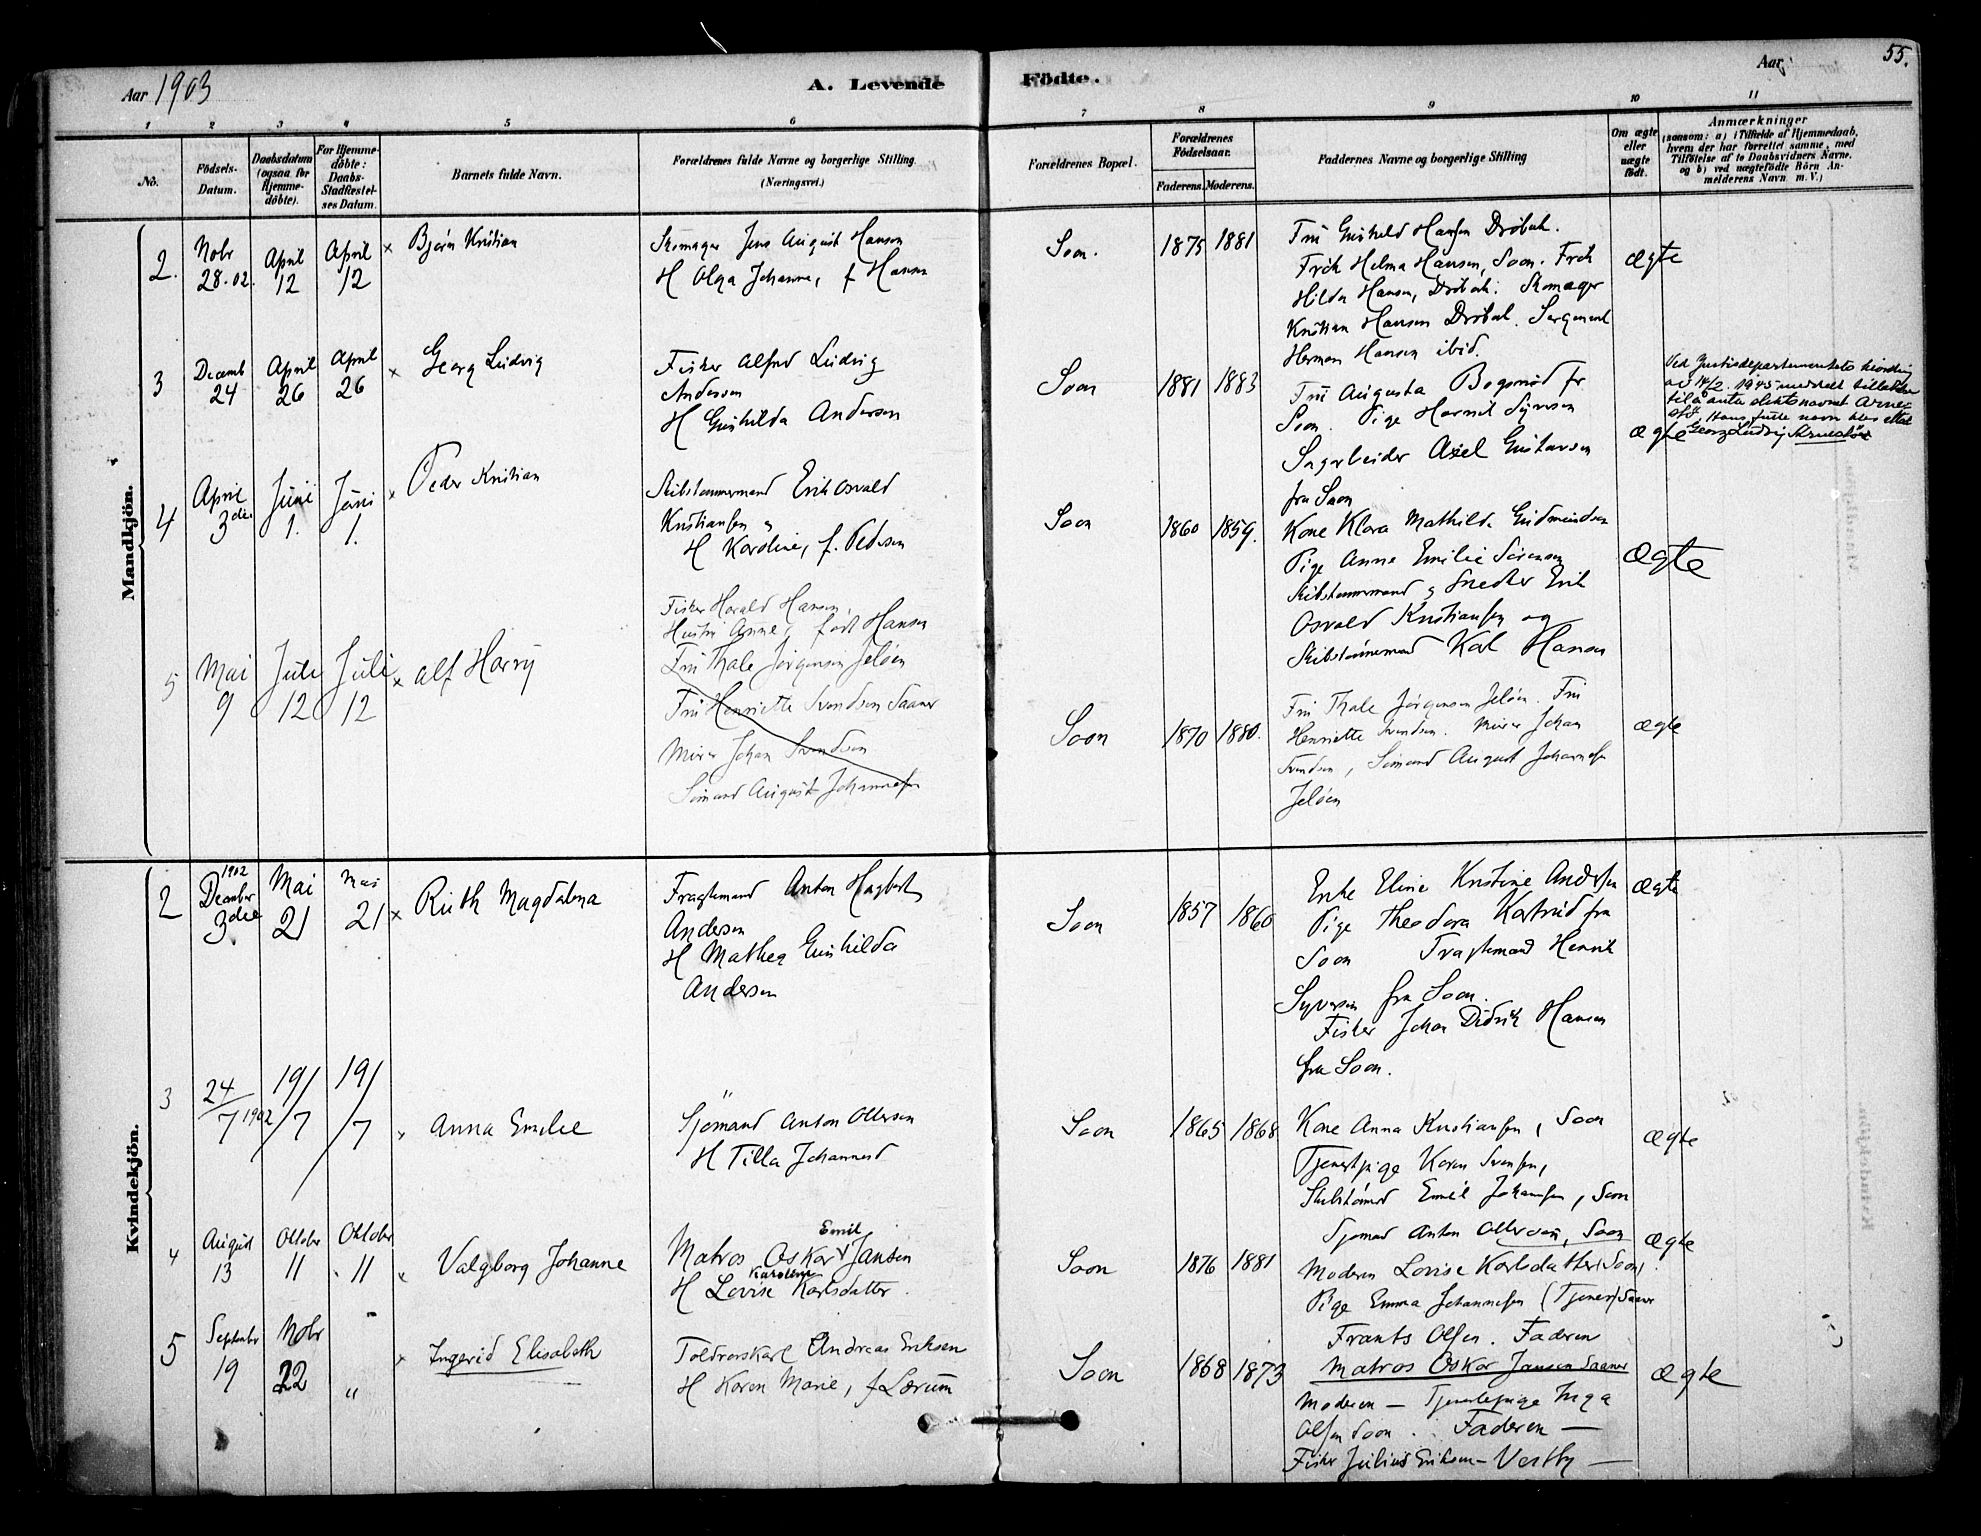 Aar 1903
A. Levende Födte.
Aar
55.
1 2 3 4 5 6 7 8 9 10 11
No.
Födsels-Datum.
Daabsdatum (ogsaa for Hjemmedöbte).
For Hjemmedöbte: Daabs-Stadfæstelses Datum.
Barnets fulde Navn.
Forældrenes fulde Navne og borgerlige Stilling.
(Næringsvei.)
Forældrenes Bopæl.
Forældrenes Födselsaar.
Faderens. Moderens.
Faddernes Navne og borgerlige Stilling
Om ægte eller uægte födt.
Anmærkninger
(saasom: a) i Tilfælde af Hjemmedaab,
hvem der har forrettet samme, med
Tilföielse af to Daabsvidners Navne,
og b) ved uægtefödte Börn Anmelderens Navn m. V.)
Mandkjön.
2. Nobr 28.02. April 12 April 12 × Bjørn Kristian
Skomager Jens August Hansen
H Olga Johanne, f Hansen
Soon. 1875 1881
Fru Gunhild Hansen Drøbak.
Frøk Helma Hansen, Soon. Frøk
Hilda Hansen, Drøbak. Skomager
Kristian Hansen Drøbak. Sergeant
Herman Hansen ibid.
ægte
3 Decemb 24 April 26 April 26 × Georg Ludvig
Fisker Alfred Ludvig
Andersen
H Gunhilda Andersen
Soon 1881 1883
Fru Augusta fr
Soon. Pige
Axel Gustavsen
fra Soon
ægte
Ved Justisdepartementets
av 14/2 1945 meddelt tillatelse
til å anta slektsnavnet Arne-
Hans fulle navn blir etter
Georg Ludvig
4 April 3die Juni 1. Juni 1. × Peder Kristian
Skibstømmermand Erik Osvald
Kristiansen og
H Karoline, f. Pedersen
Soon 1860 1859.
Kone Klara Mathilde Gudmundsen
Pige Anne Emilie Sørensen
Skibstømmermand og Snedker Erik
Osvald Kristiansen og
Skibstømmermand Karl Hansen
ægte
5 Mai 9 Juli 12 Juli 12 × Alf Harry
Fisker Harald Hansen
Hustru Anne, født Hansen
Fru Thale Jørgensen Jeløen
Fru Henriette Svendsen Saaner
Murer Johan Svendsen
Sømand August Johannesen
Soon 1870 1880.
Fru Thale Jørgensen Jeløen. Fru
Henriette Svendsen. Murer Johan
Svendsen, Sømand August Johannesen
Jeløen
ægte
Kvindekjön.
2 1902 December 3die Mai 21 Mai 21 × Ruth Magdalena
Fragtemand Anton Hagbart
Andersen
H Mathea Gunhilda
Andersen
Soon 1857 1860
Enke Eline Kristine Andersen
Pige Theodora fra
Soon Fragtemand Henrik
Syversen fra Soon.
Fisker Johan Didrik Hansen
fra Soon.
ægte
3 24/7 1902 19/7 19/7 × Anna Emilie
Sjømand Anton Ottersen
H Tilla Johannesd
Soon 1865 1868
Kone Anna Kristiansen, Soon
Tjenestpige Karen Svensen,
Skibstømrd Emil Johansen, Soon
Sjømand Anton Ottersen, Soon
ægte
4 August 13 Oktober 11 Oktober 11 × Valgborg Johanne
Matros Oskar Emil Jansen
H Lovise Karoline Karlsdatter
Soon 1876 1881
Moderen Lovise Karlsdatter (Soon)
Pige Emma Johannesen (Tjener) Saaner
Frants Olsen. Faderen
Matros Oskar Jansen Saaner
ægte
5 September 19 Nobr 22 " × Ingerid Elisabeth
Toldroerskarl Andreas Eriksen
H Karen Marie, f Lærum
Soon 1868 1873
Moderen — Tjenestepige Inga
Olsen Soon. Faderen —
Fisker Julius Eriksen — Vestby —
ægte